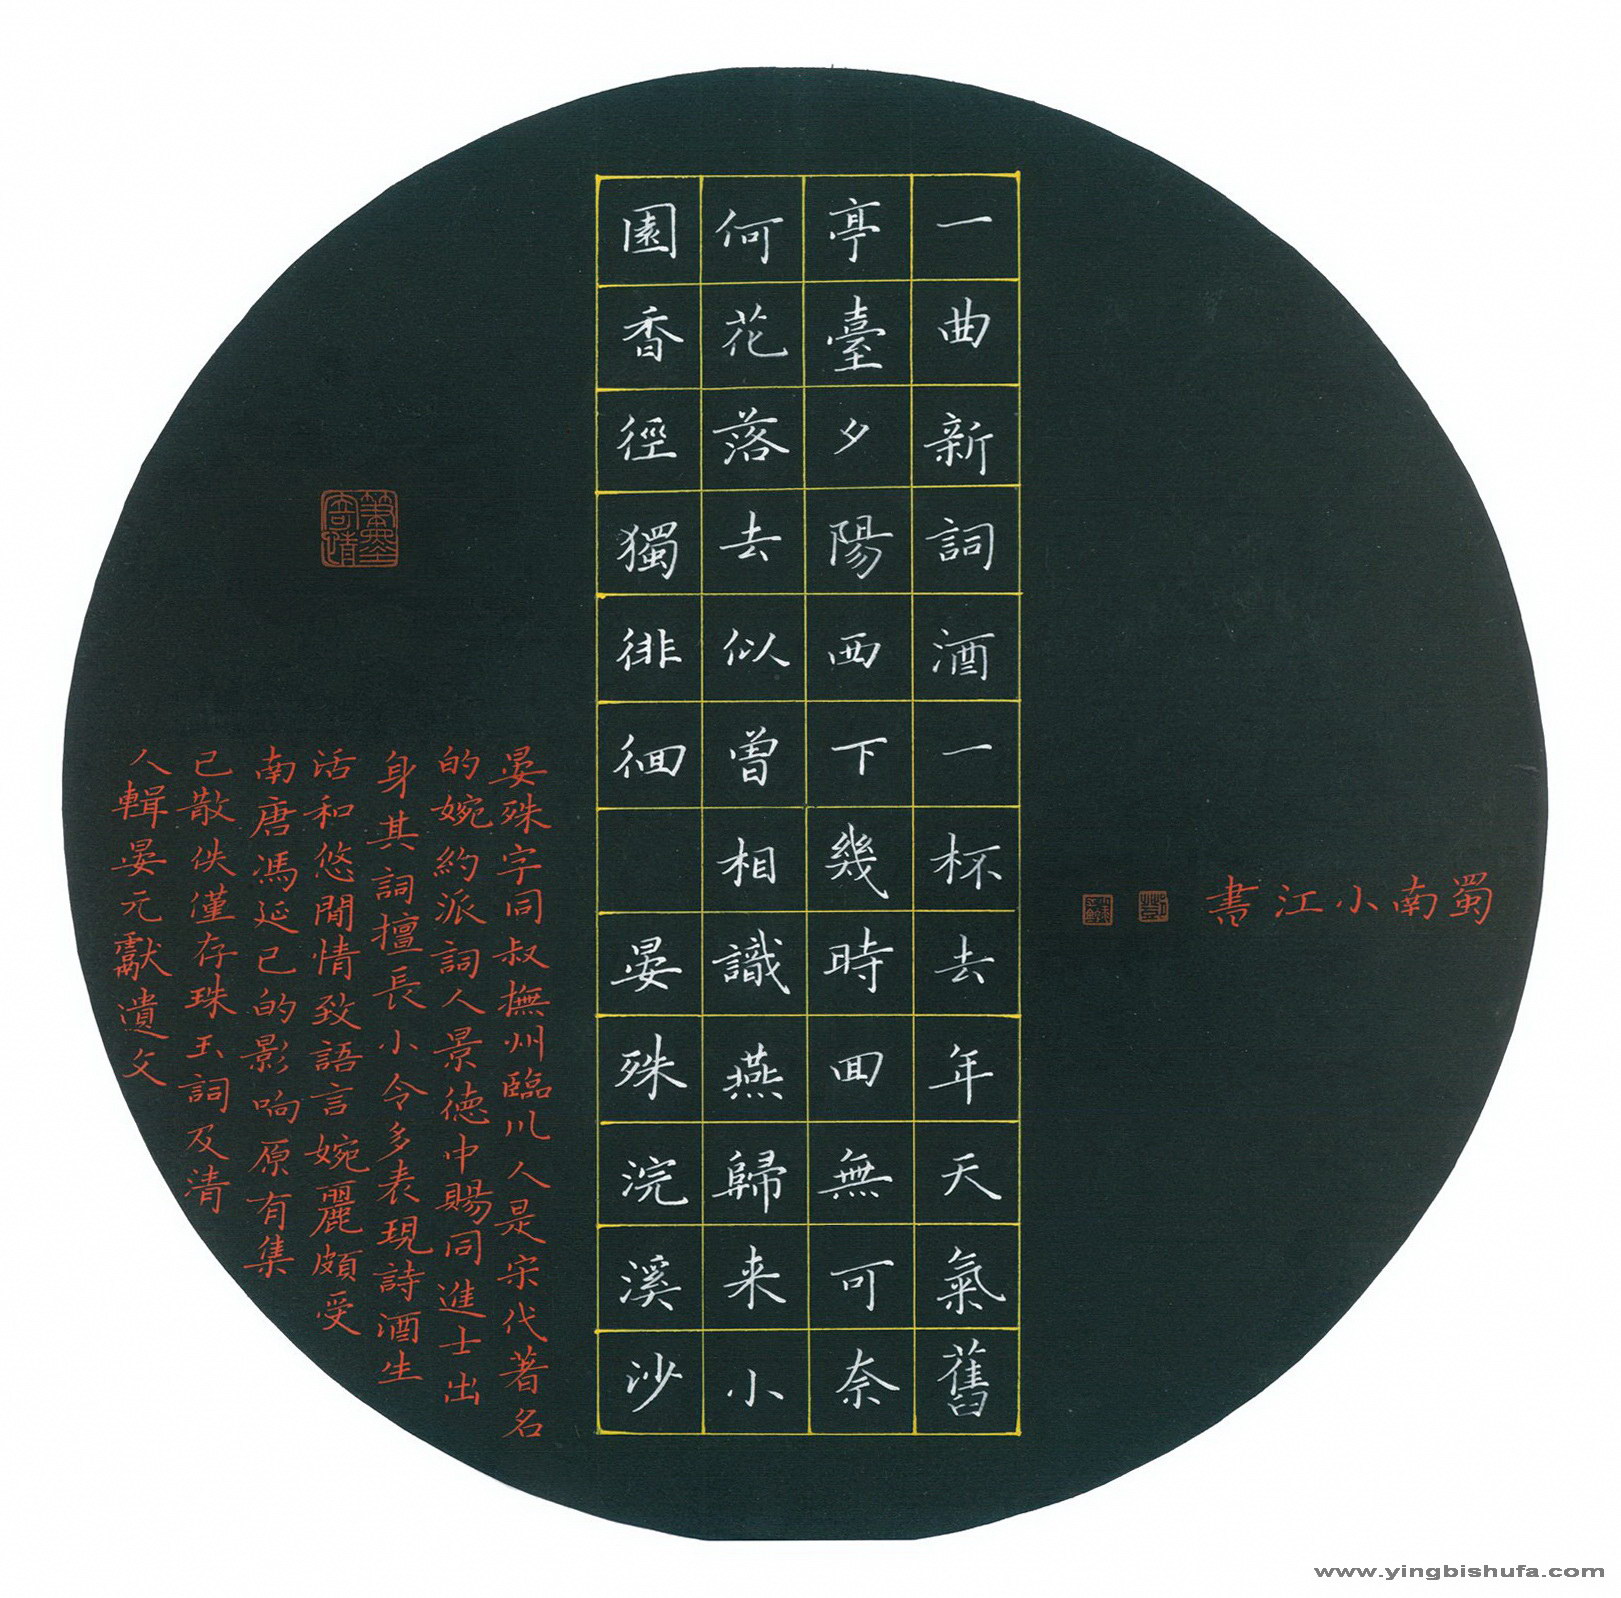 一曲新詞酒一杯去年天氣舊
亭臺夕陽西下幾時回無可奈
何花落去似曾相識燕歸来小
園香徑獨徘徊 晏殊浣溪沙
晏殊字同叔撫州臨川人是宋代著名
的婉約派詞人景德中賜同進士出
身其詞擅長小令多表現詩酒生
活和悠閒情致語言婉麗頗受
南唐馮延已的影响原有集
已散佚僅存珠玉詞及清
人輯晏元獻遺文
蜀南小江書
筆墨寄情
www.yingbishufa.com